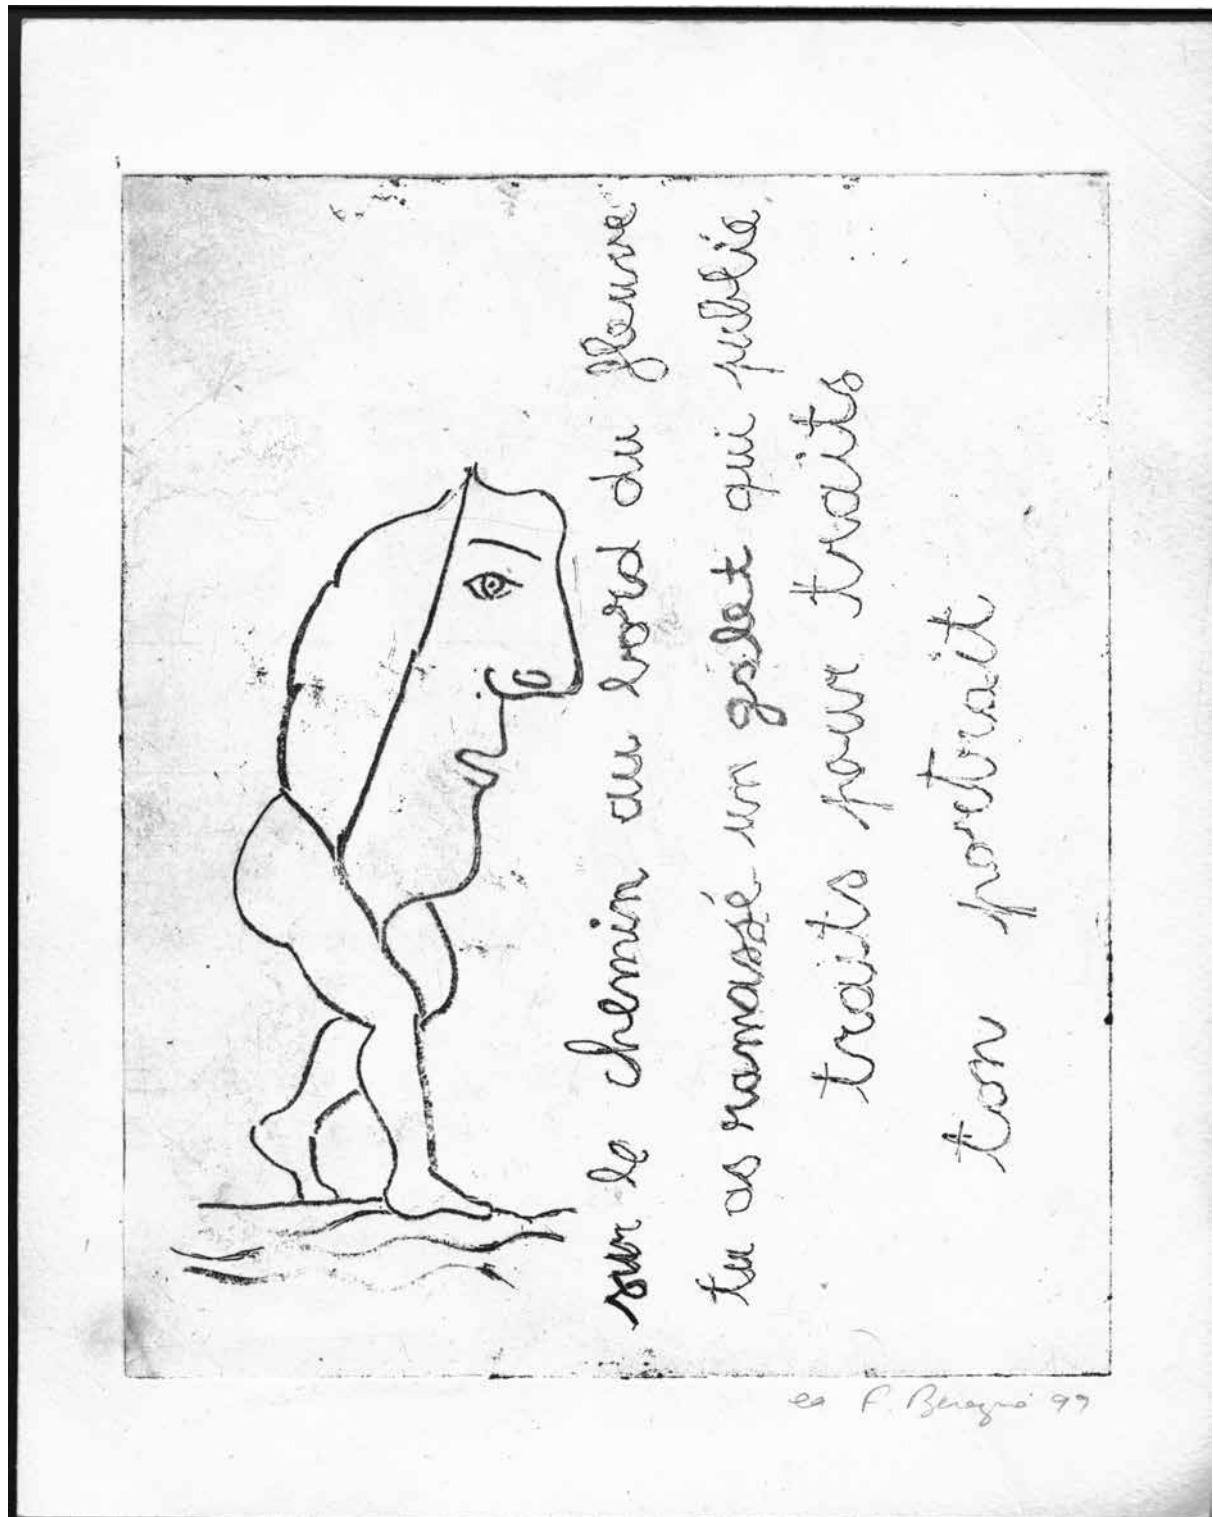 sur le chemin au bord du fleuve
tu as ramassé un galet qui publie
traits pour traits
ton portrait
ea F. Beragné 99